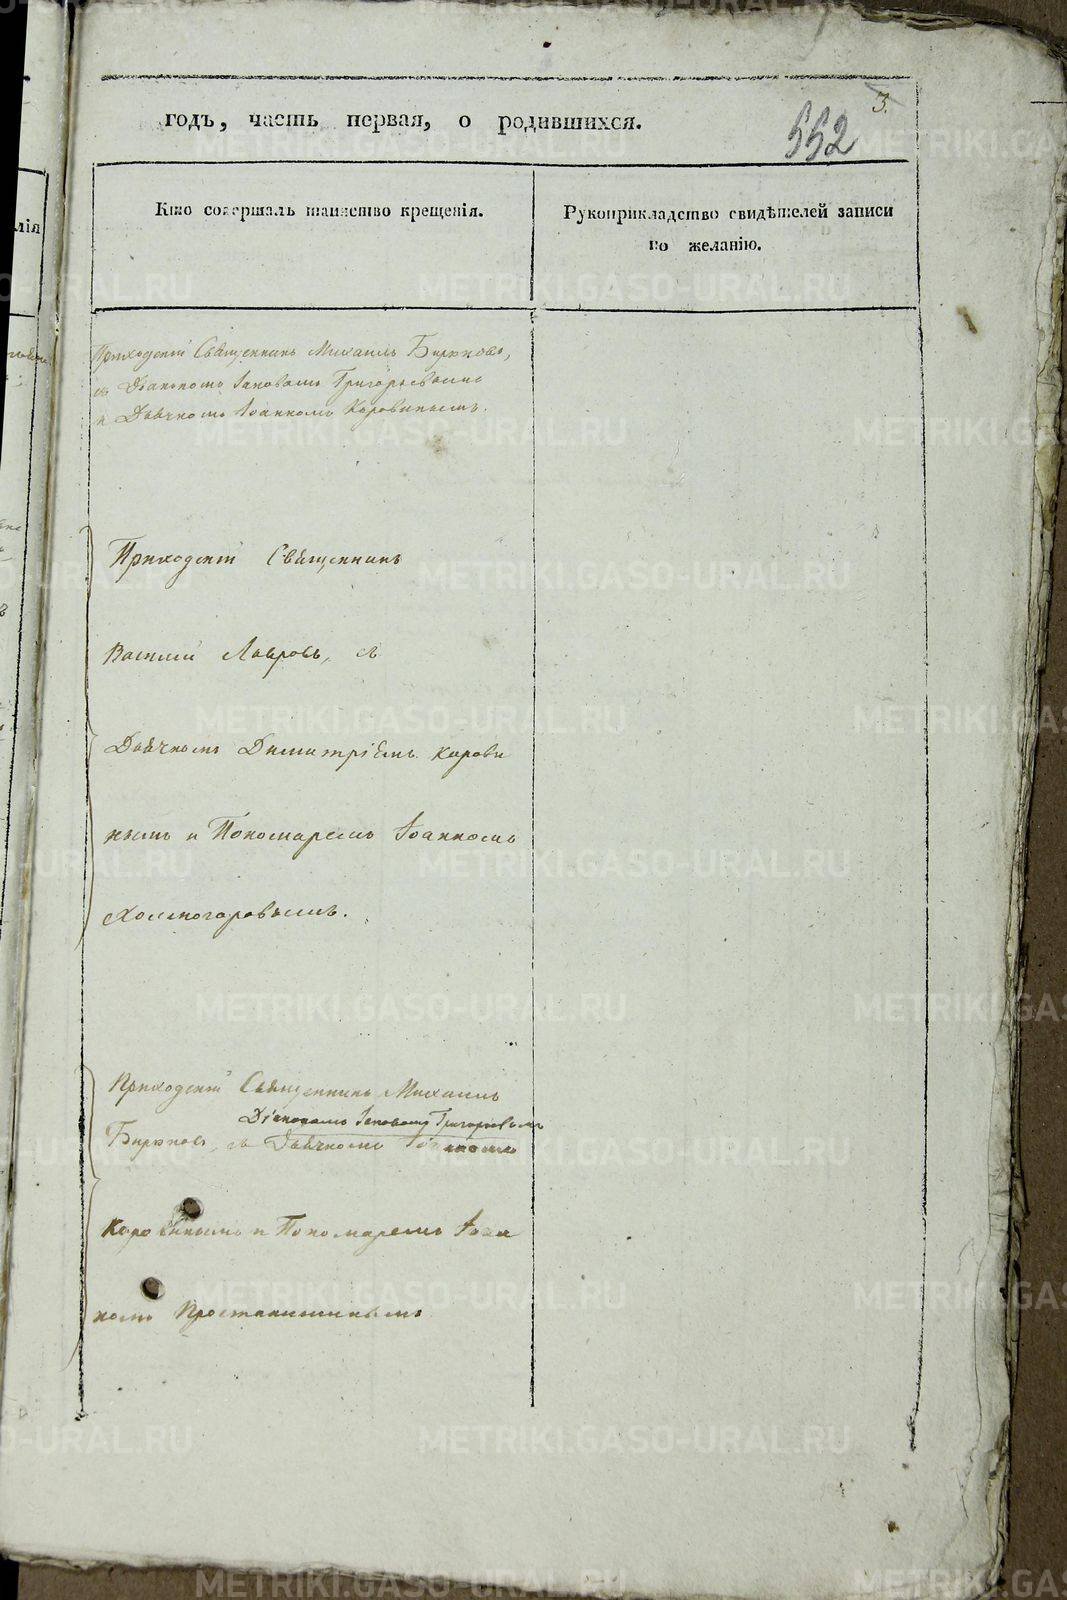 годъ, часть первая, о родившихся.
3.
552
Кто совершалъ таинство крещенія.
Рукоприкладство свидѣтелей записи
по желанію.
лія
Приходскій Священникъ Михаилъ Бирюковъ,
съ Діакономъ Іаковомъ Григорьевымъ
и Дьячкомъ Іоанномъ Коровинымъ.
Приходскій Священникъ
Василій Лавровъ, съ
Дьячкомъ Димитріемъ Корови
нымъ и Пономаремъ Іоанномъ
Холмогоровымъ.
Приходскій Священникъ Михаилъ
Діакономъ Іаковомъ Григорьевымъ
Бирюковъ, съ Дьячкомъ Іоанномъ
Коровинымъ и Пономаремъ Іоан
номъ Простанишинымъ
METRIKI.GASO-URAL.RU